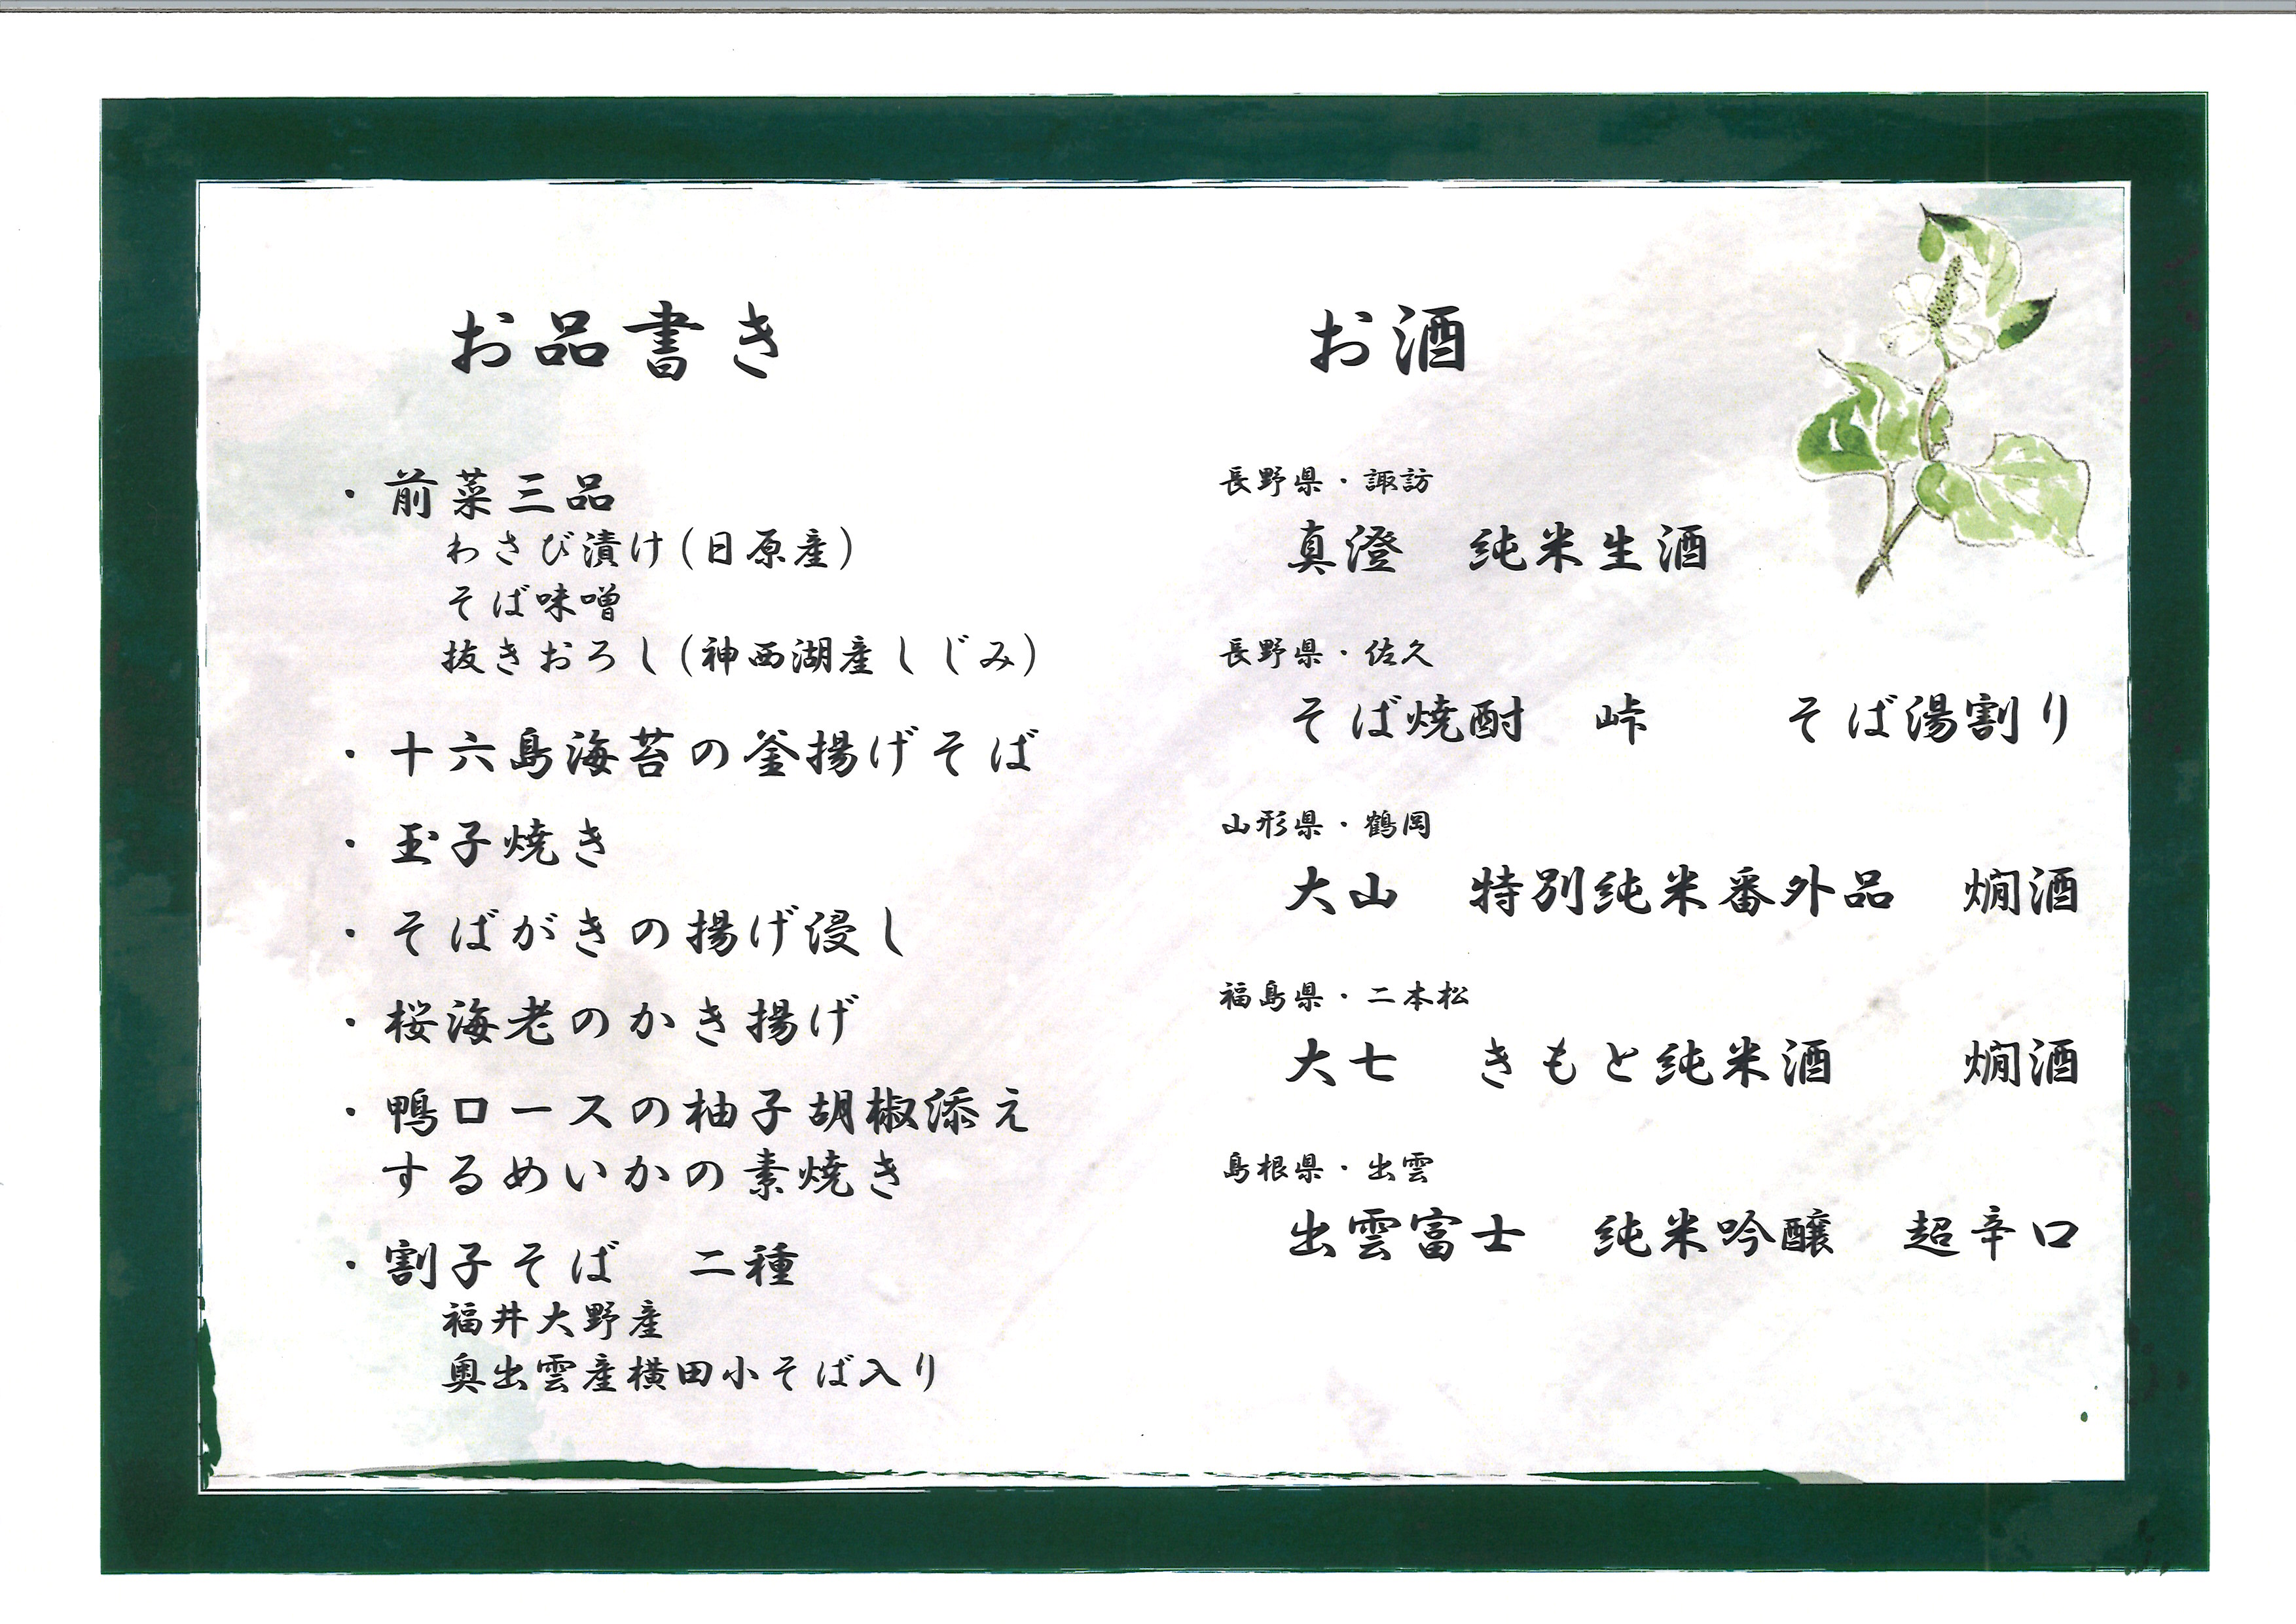 お品書き
・前菜三品
わさび漬け(日原産)
そば味噌
抜きおろし(神西湖産しじみ)
・十六島海苔の釜揚げそば
・玉子焼き
・そばがきの揚げ浸し
・桜海老のかき揚げ
・鴨ロースの柚子胡椒添え
するめいかの素焼き
・割子そば　二種
福井大野産
奥出雲産横田小そば入り
お酒
長野県・諏訪
真澄　純米生酒
長野県・佐久
そば焼酎　峠　　そば湯割り
山形県・鶴岡
大山　特別純米番外品　燗酒
福島県・二本松
大七　きもと純米酒　　燗酒
島根県・出雲
出雲富士　純米吟醸　超辛口